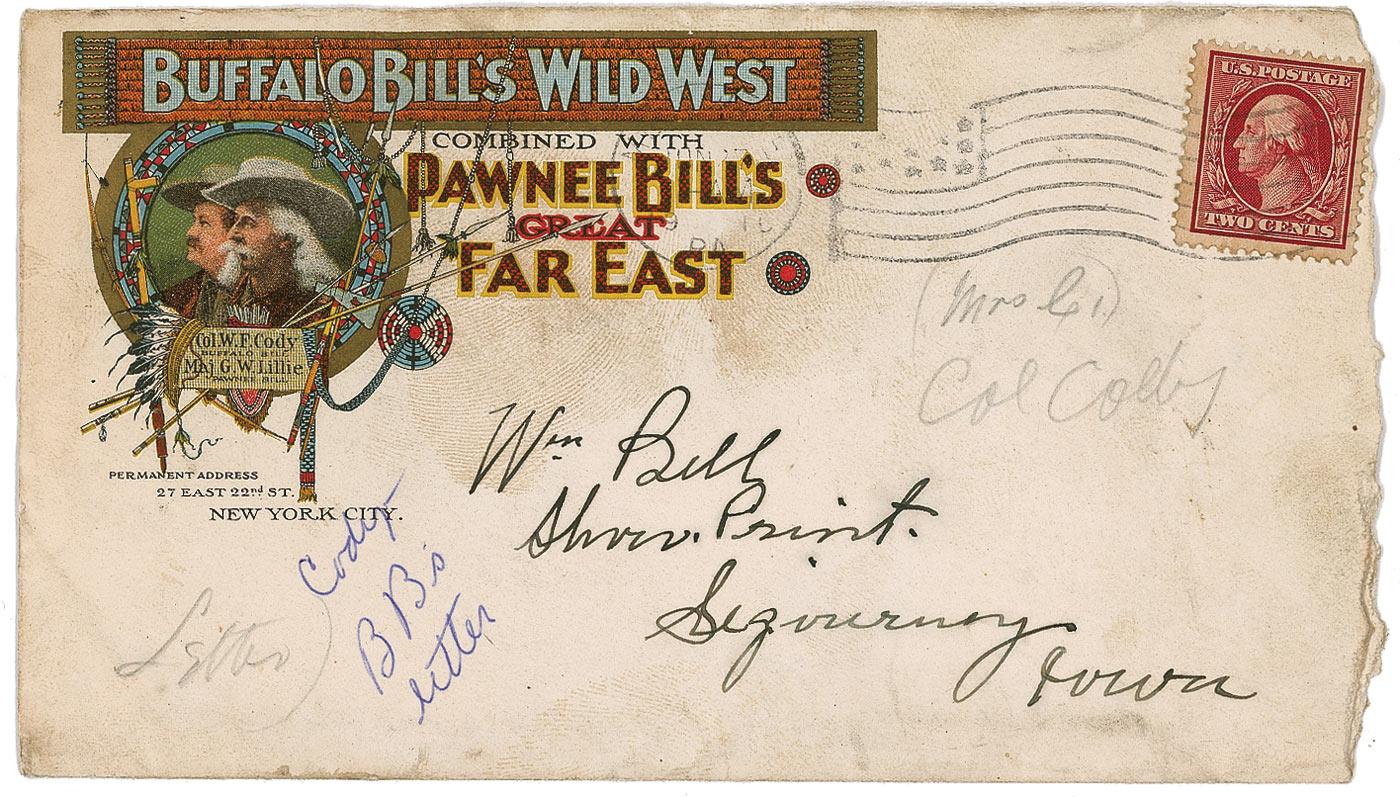 BUFFALO BILL'S WILD WEST
COMBINED WITH
PAWNEE BILL'S
GREAT
FAR EAST
Col W. F. Cody
BUFFALO BILL
Maj G. W. Lillie
PAWNEE BILL
PERMANENT ADDRESS
27 EAST 22nd ST.
NEW YORK CITY.
U.S. POSTAGE
TWO CENTS
PA
(Mrs C.)
Col Colby
Wm Bell
Show. Print.
Sigourney
Iowa
Cody
BB's
letter
Letter)